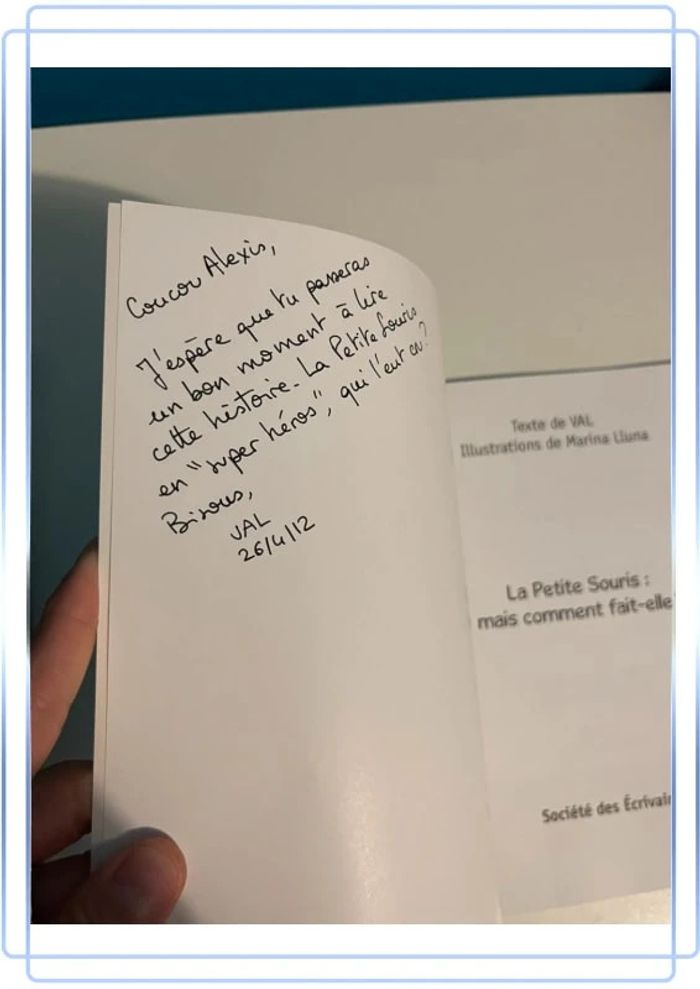 Coucou Alexis,
J'espère que tu passeras
un bon moment à lire
cette histoire. La Petite Souris
en "super héros", qui l'eut cru?
Bisous,
VAL
26/4/12
Texte de VAL
Illustrations de Marina Lluna
La Petite Souris :
mais comment fait-elle
Société des Écrivai